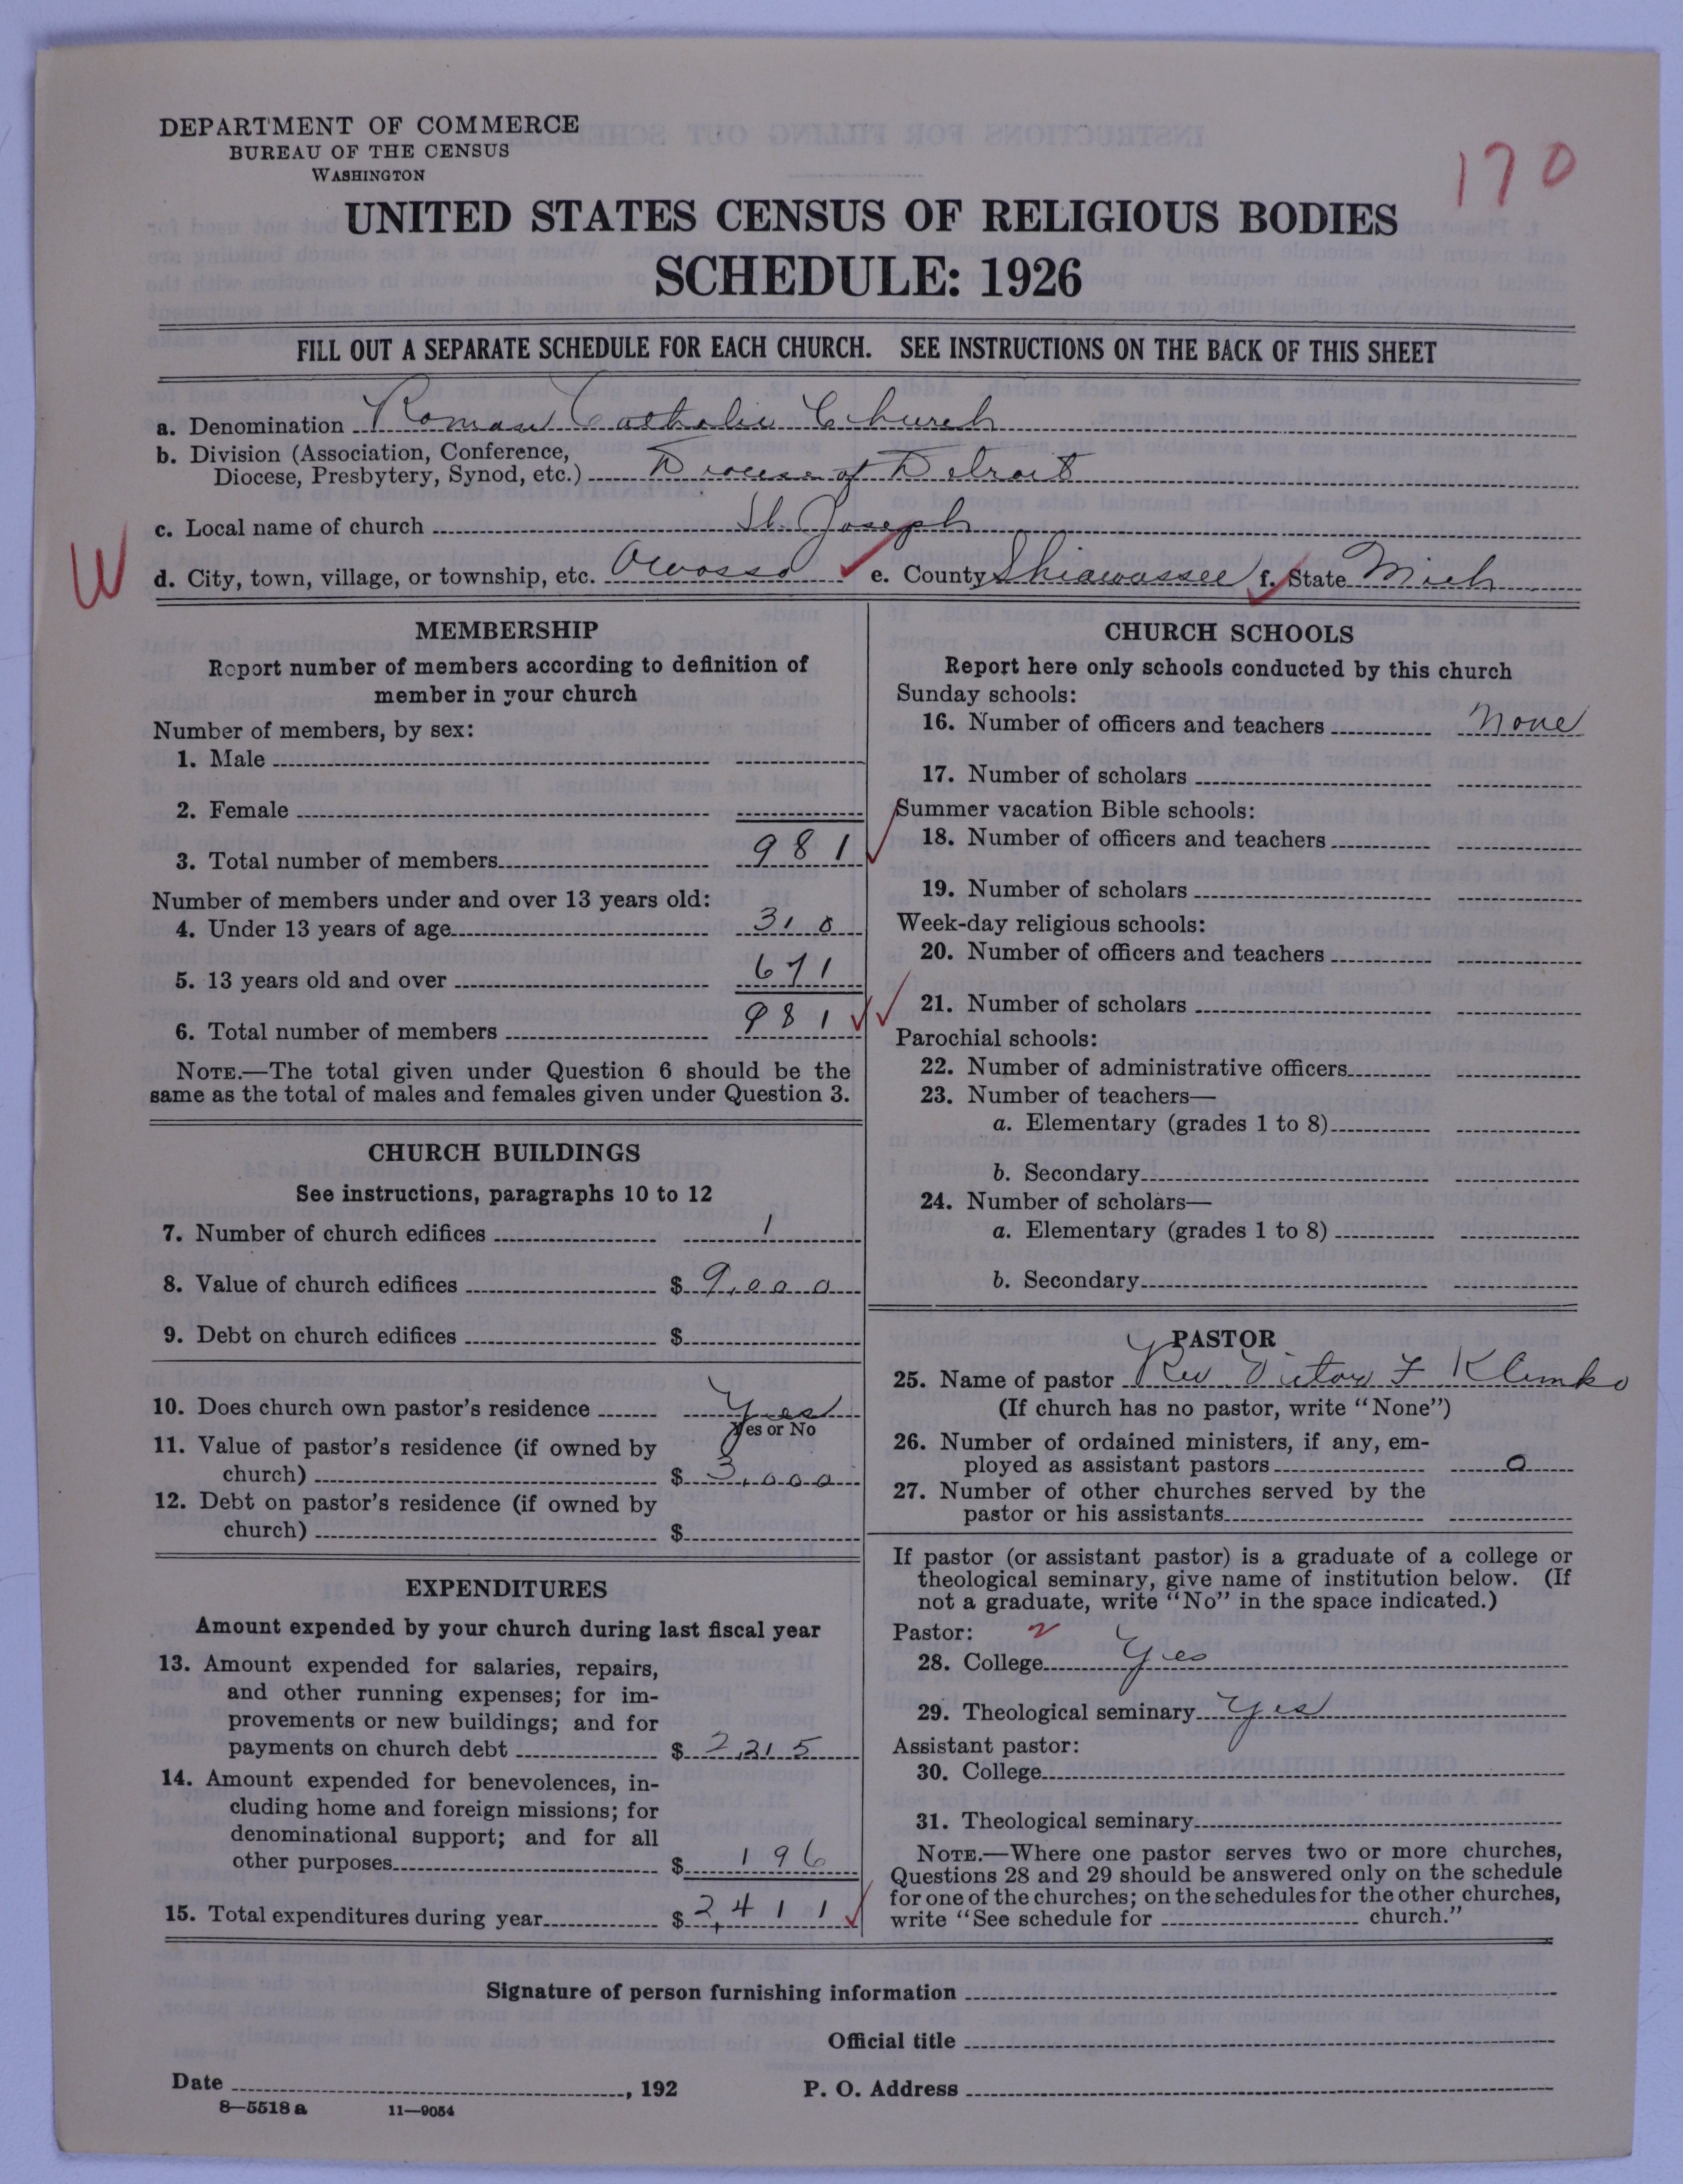 DEPARTMENT OF COMMERCE
BUREAU OF THE CENSUS
WASHINGTON
170
UNITED STATES CENSUS OF RELIGIOUS BODIES
SCHEDULE: 1926
FILL OUT A SEPARATE SCHEDULE FOR EACH CHURCH. SEE INSTRUCTIONS ON THE BACK OF THIS SHEET
a. Denomination Roman Catholic Church
b. Division (Association, Conference,
Diocese, Presbytery, Synod, etc.) Diocese of Detroit
c. Local name of church St. Joseph
W
d. City, town, village, or township, etc. Owosso e. County Shiawassee f. State Mich
MEMBERSHIP
Report number of members according to definition of
member in your church
Number of members, by sex:
1. Male
2. Female
3. Total number of members 981
Number of members under and over 13 years old:
4. Under 13 years of age 310
5. 13 years old and over 671
6. Total number of members 981
NOTE.—The total given under Question 6 should be the
same as the total of males and females given under Question 3.
CHURCH BUILDINGS
See instructions, paragraphs 10 to 12
7. Number of church edifices 1
8. Value of church edifices $ 9,000
9. Debt on church edifices $
10. Does church own pastor's residence Yes
Yes or No
11. Value of pastor's residence (if owned by
church) $ 3,000
12. Debt on pastor's residence (if owned by
church) $
EXPENDITURES
Amount expended by your church during last fiscal year
13. Amount expended for salaries, repairs,
and other running expenses; for im-
provements or new buildings; and for
payments on church debt $ 2,215
14. Amount expended for benevolences, in-
cluding home and foreign missions; for
denominational support; and for all
other purposes $ 196
15. Total expenditures during year $ 2,411
CHURCH SCHOOLS
Report here only schools conducted by this church
Sunday schools:
16. Number of officers and teachers None
17. Number of scholars
Summer vacation Bible schools:
18. Number of officers and teachers
19. Number of scholars
Week-day religious schools:
20. Number of officers and teachers
21. Number of scholars
Parochial schools:
22. Number of administrative officers
23. Number of teachers—
a. Elementary (grades 1 to 8)
b. Secondary
24. Number of scholars—
a. Elementary (grades 1 to 8)
b. Secondary
PASTOR
25. Name of pastor Rev Victor F Klimko
(If church has no pastor, write "None")
26. Number of ordained ministers, if any, em-
ployed as assistant pastors 0
27. Number of other churches served by the
pastor or his assistants
If pastor (or assistant pastor) is a graduate of a college or
theological seminary, give name of institution below. (If
not a graduate, write "No" in the space indicated.)
Pastor: 2
28. College Yes
29. Theological seminary Yes
Assistant pastor:
30. College
31. Theological seminary
NOTE.—Where one pastor serves two or more churches,
Questions 28 and 29 should be answered only on the schedule
for one of the churches; on the schedules for the other churches,
write "See schedule for church."
Signature of person furnishing information
Official title
Date , 192 P. O. Address
8—5518 a 11—9054